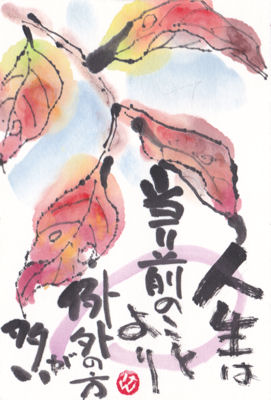 人生は
当り前のこと
より
例外の方
が
多い